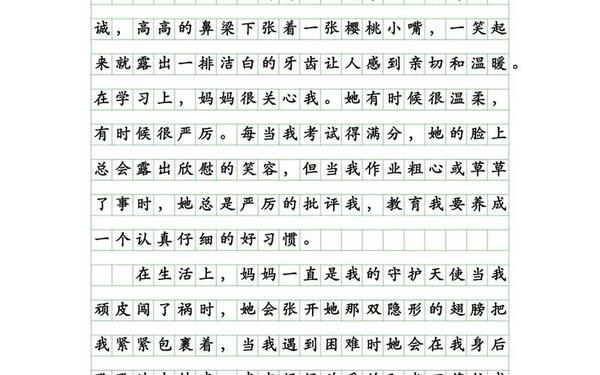 诚，高高的鼻梁下张着一张樱桃小嘴，一笑起
来就露出一排洁白的牙齿让人感到亲切和温暖。
在学习上，妈妈很关心我。她有时候很温柔，
有时候很严厉。每当我考试得满分，她的脸上
总会露出欣慰的笑容，但当我作业粗心或草草
了事时，她总是严厉的批评我，教育我要养成
一个认真仔细的好习惯。
在生活上，妈妈一直是我的守护天使当我
顽皮闯了祸时，她会张开她那双隐形的翅膀把
我紧紧包裹着，当我遇到困难时她会在我身后